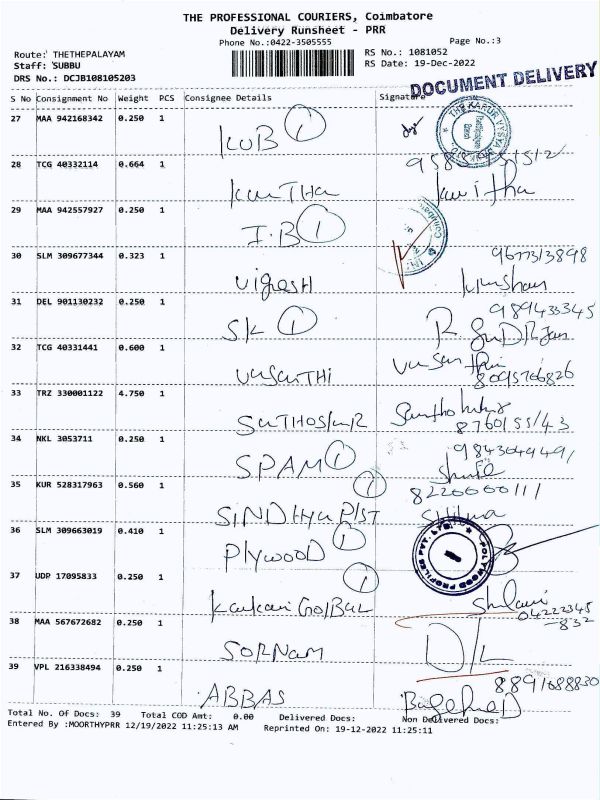 THE PROFESSIONAL COURIERS, Coimbatore
Delivery Runsheet - PRR
Phone No.:0422-3505555 Page No.:3
Route: THETHEPALAYAM RS No.: 1081052
Staff: SUBBU RS Date: 19-Dec-2022
DRS No.: DCJB108105203
DOCUMENT DELIVERY
S No Consignment No Weight PCS Consignee Details Signature
27 MAA 942168342 0.250 1
KVB 1
28 TCG 40332114 0.664 1
Kavitha
29 MAA 942557927 0.250 1
I.B 1
30 SLM 309677344 0.323 1 9677313898
Vignesh
31 DEL 901130232 0.250 1 989433345
SK 1 R
32 TCG 40331441 0.600 1
8095766826
33 TRZ 330001122 4.750 1
8760155143
34 NKL 3053711 0.250 1 9843049491
SPAM 1
35 KUR 528317963 0.560 1 8220000111
SINDHYA P/ST 1
36 SLM 309663019 0.410 1
PLYWOOD 1
POLYWOOD PROFILES PVT. LTD.
37 UDP 17095833 0.250 1
1 04222345
-832
38 MAA 567672682 0.250 1
SORNAM D/L
39 VPL 216338494 0.250 1 8891088830
ABBAS
Total No. Of Docs: 39 Total COD Amt: 0.00 Delivered Docs: Non Delivered Docs:
Entered By :MOORTHYPRR 12/19/2022 11:25:13 AM Reprinted On: 19-12-2022 11:25:11